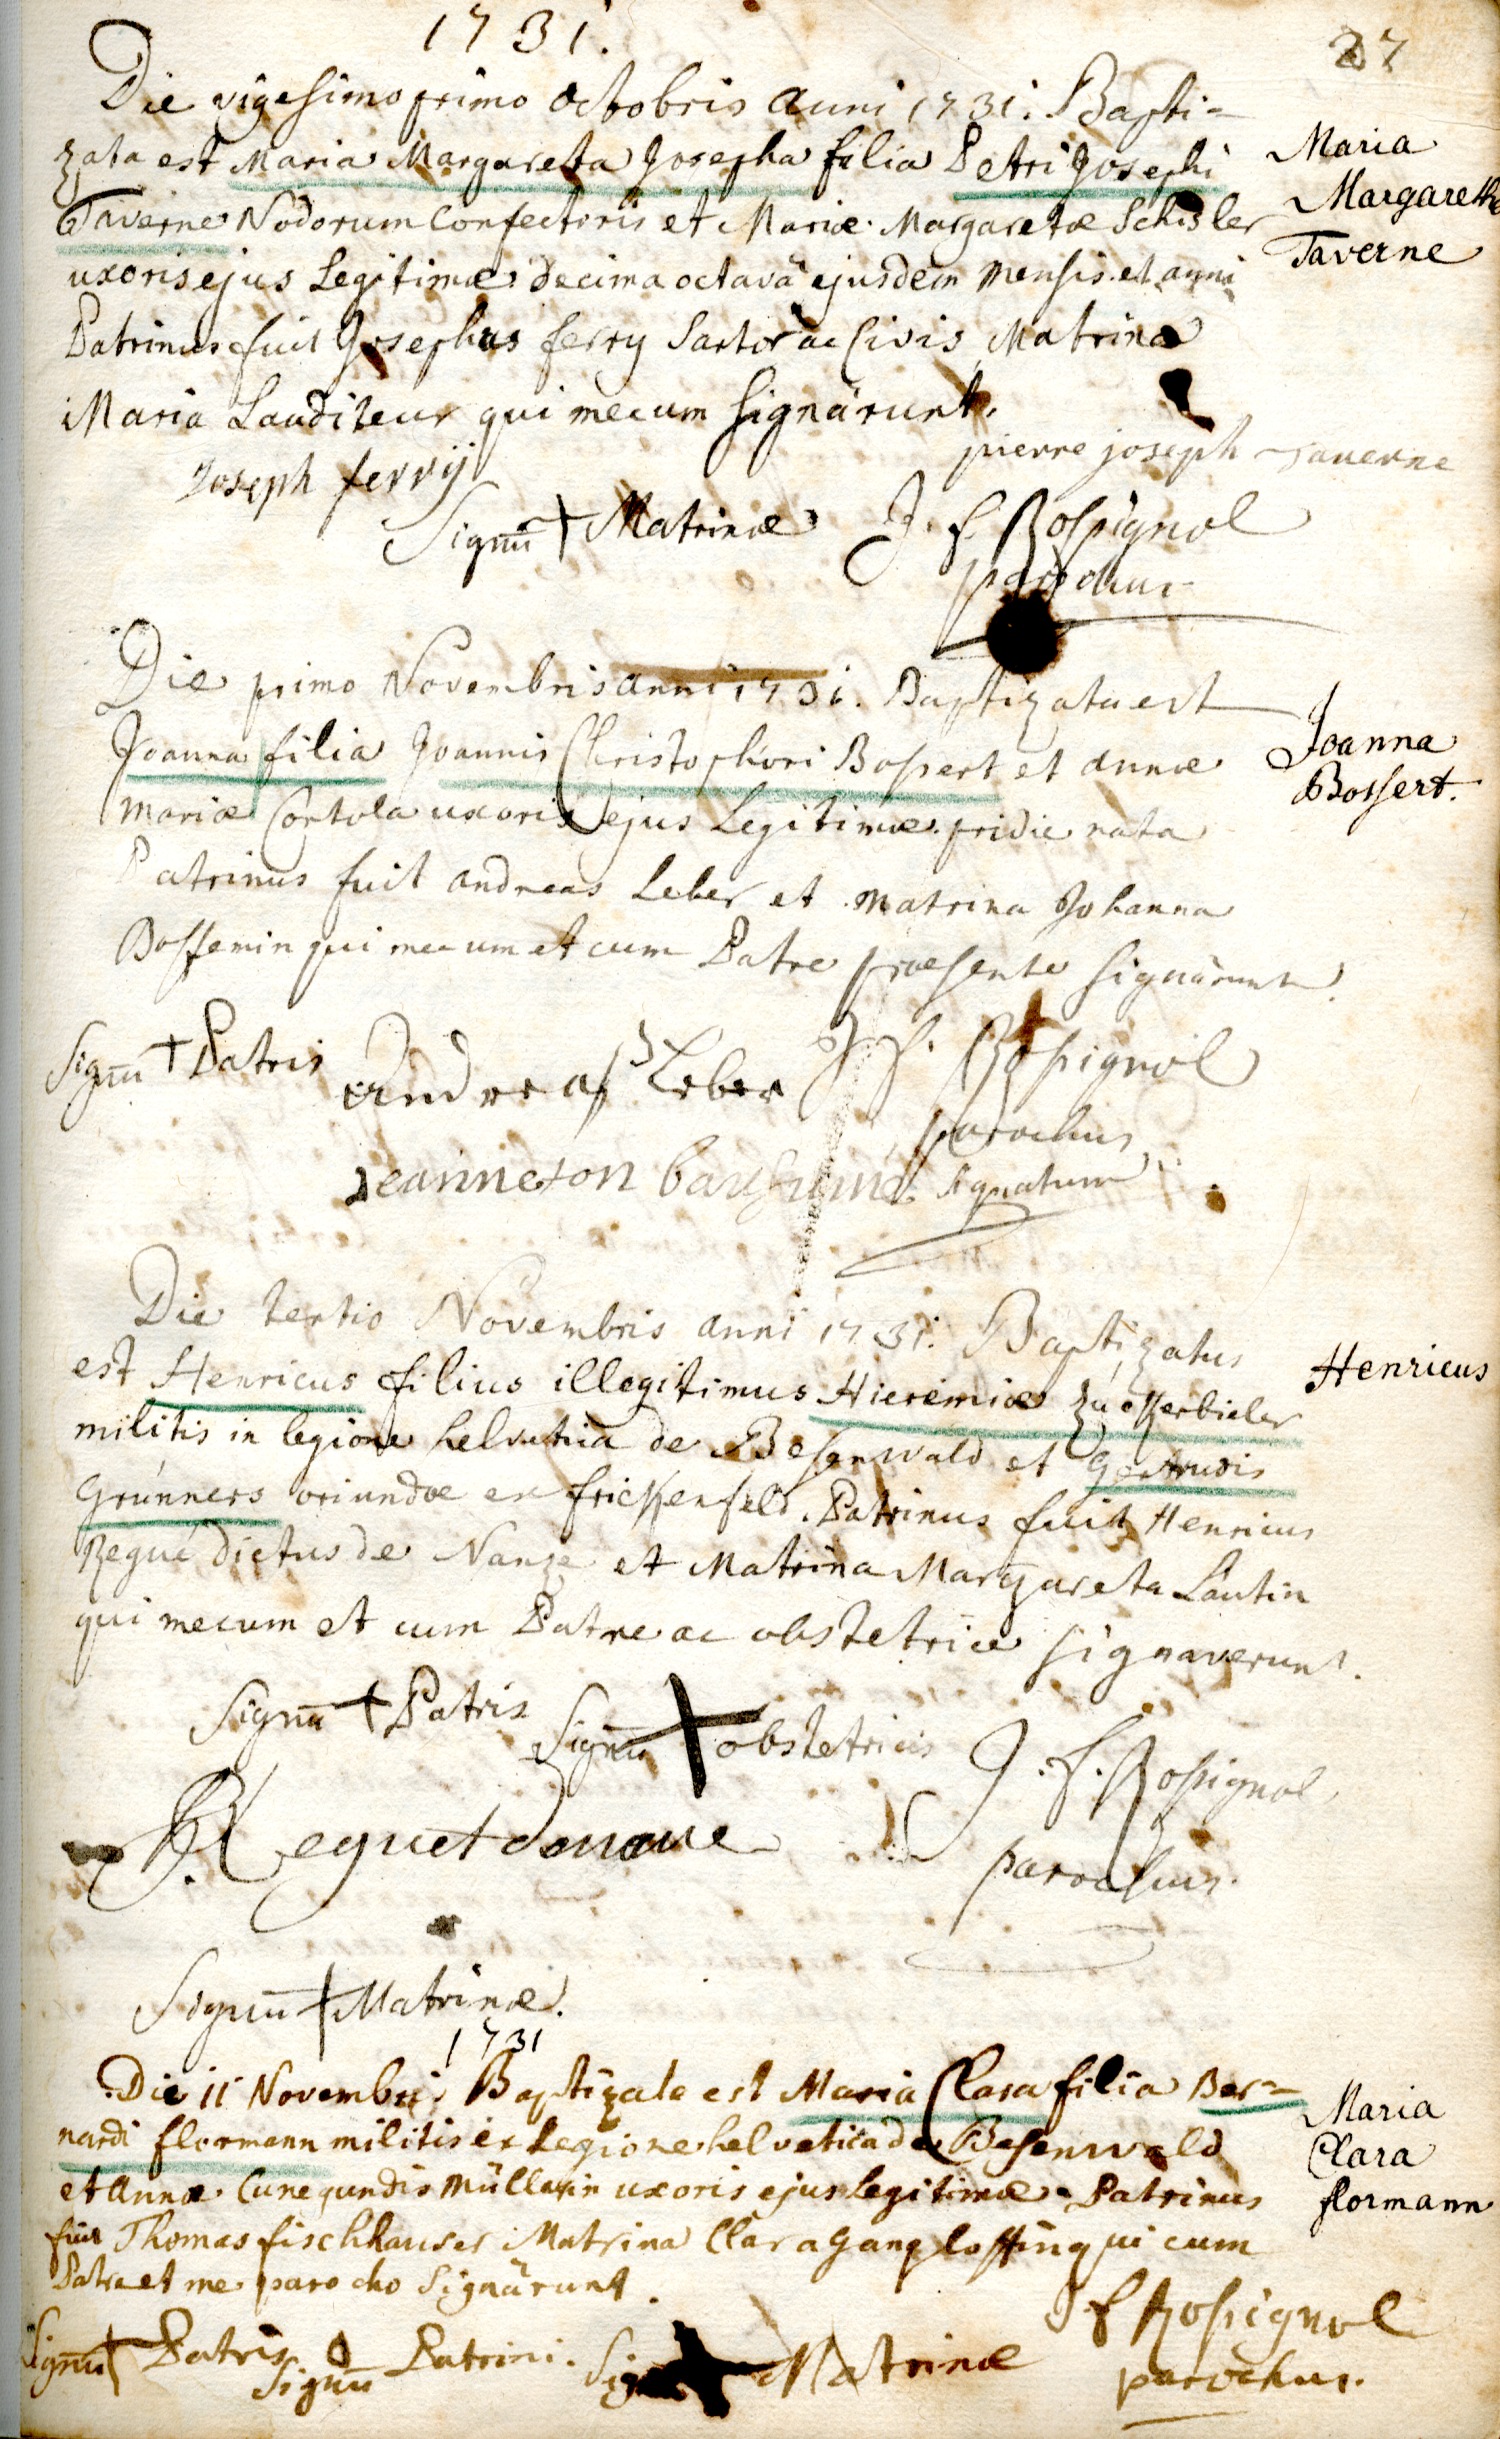 1731.
27
Die vigesimo primo octobris anni 1731. Bapti=
zata est Maria Margareta Josepha filia Petri Josephi
Taverne Nodorum Confectoris et Mariæ Margaretæ Schisler
uxoris ejus Legitimæ decima octavâ ejusdem mensis et anni
Patrinus fuit Josephus ferry Sartor ac Civis Matrina
Maria Lauditeur qui mecum signârunt.
Maria
Margaretha
Taverne
pierre joseph Taverne
Joseph ferrij
Signū + Matrinæ
J. f. Rossignol
parochus
Die primo Novembris anni 1731. Baptizata est
Joanna filia Joannis Christophori Bossert et annæ
mariæ Cortola uxoris ejus Legitimæ pridie nata
Patrinus fuit andreas Leber et matrina Johanna
Bossemin qui mecum et cum Patre præsente signârunt.
Joanna
Bossert.
Signū + Patris
Andreas Leber
J f. Rossignol
parochus
Jeanneton
signatum
Die tertio Novembris anni 1731. Baptizatus
est Henricus filius illegitimus Hieremiæ Zu
militis in legione helvetica de Besenwald et Gertrudis
Grünners oriundæ ex frickenfeld. Patrinus fuit Henricus
Regué dictus de Nanze et Matrina Margareta Lautin
qui mecum et cum Patre ac obstetrice signaverunt.
Henricus
Signū + Patris
Signū + obstetricis
J. f. Rossignol
parochus.
Signū + Matrinæ.
1731
Die 11 Novembris Baptizata est Maria Clara filia Ber=
nardi flormann militis ex Legione helvetica de Besenwald
et annæ Cunegundis Müllerin uxoris ejus legitimæ. Patrinus
fuit Thomas fischhauser Matrina Clara Gangloffin qui cum
Patre et me parocho signârunt.
Maria
Clara
flormann
Signū + Patris
Signū Patrini.
Sig Matrinæ
J f Rossignol
parochus.